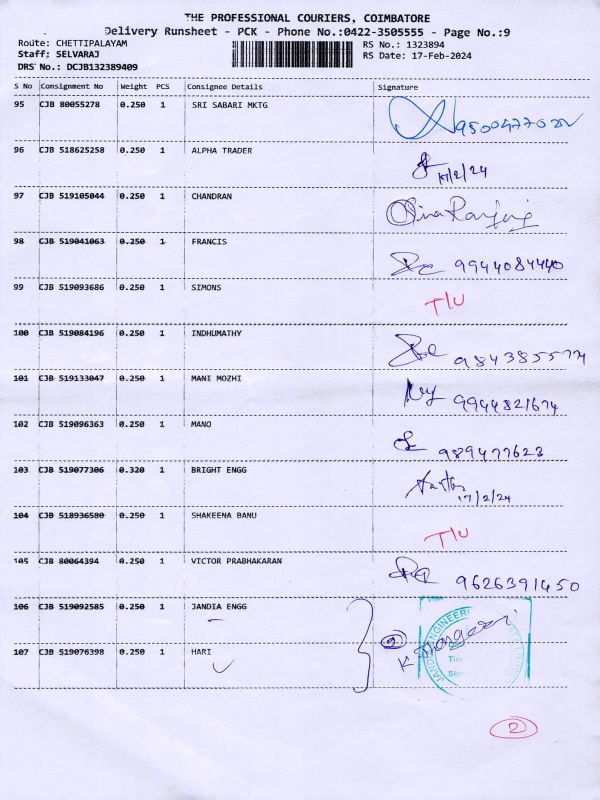 THE PROFESSIONAL COURIERS, COIMBATORE
Delivery Runsheet - PCK - Phone No.:0422-3505555 - Page No.:9
Route: CHETTIPALAYAM
RS No.: 1323894
Staff: SELVARAJ
RS Date: 17-Feb-2024
DRS No.: DCJB132389409
S No Consignment No Weight PCS Consignee Details Signature
95 CJB 80055278 0.250 1 SRI SABARI MKTG
96 CJB 518625258 0.250 1 ALPHA TRADER 17/2/24
97 CJB 519105044 0.250 1 CHANDRAN
98 CJB 519041063 0.250 1 FRANCIS 9944084440
99 CJB 519093686 0.250 1 SIMONS T/U
100 CJB 519084196 0.250 1 INDHUMATHY
101 CJB 519133047 0.250 1 MANI MOZHI 9944821674
102 CJB 519096363 0.250 1 MANO 989477623
103 CJB 519077306 0.320 1 BRIGHT ENGG 17/2/24
104 CJB 518936580 0.250 1 SHAKEENA BANU T/U
105 CJB 80064394 0.250 1 VICTOR PRABHAKARAN 9626391450
106 CJB 519092585 0.250 1 JANDIA ENGG
107 CJB 519076398 0.250 1 HARI
2